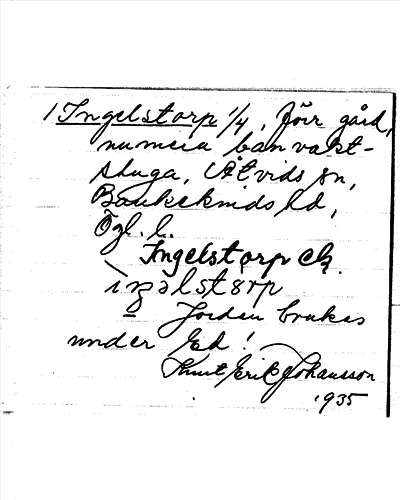 1 Ingelstorp 1/4, förr gård,
numera banvakt-
stuga, Åtvids sn,
Bankekinds hd,
Ögl. l.
Ingelstorp ek.
ìŋəlstørp
Jorden brukas
under Ed!
Knut Erik Johansson
1935